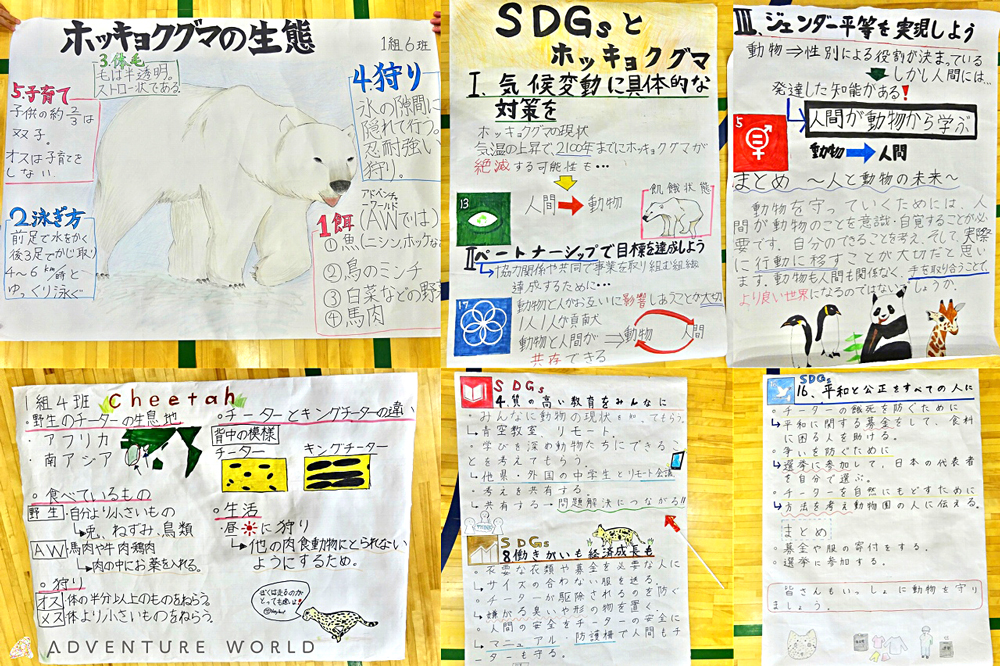 ホッキョクグマの生態
1組6班
3.体毛
毛は半透明。
ストロー状である。
5.子育て
子供の約2/3は
双子。
オスは子育てを
しない。
4.狩り
氷の隙間に
隠れて行う。
忍耐強い
狩り。
2.泳ぎ方
前足で水をかく
後3足でかじ取り
4〜6km/時と
ゆっくり泳ぐ
1.餌
アドベンチャーワールド
(AWでは)
①魚(ニシン、ホッケな
②鳥のミンチ
③白菜などの野
④馬肉
SDGsと
ホッキョクグマ
I.気候変動に具体的な
対策を
ホッキョクグマの現状
気温の上昇で、2100年までにホッキョクグマが
絶滅する可能性も…
人間➡動物
飢餓状態
13
IIパートナーシップで目標を達成しよう
↳協力関係や共同で事業を取り組む組織
達成するために…
17
動物と人がお互いに影響しあうことが大切
1人1人が貢献
動物と人間が⇒動物 人間
共存できる
III、ジェンダー平等を実現しよう
動物⇒性別による役割が決まっている
しかし人間には…
発達した知能がある!
↳人間が動物から学ぶ
5
動物➡人間
まとめ 〜人と動物の未来〜
動物を守っていくためには、人
間が動物のことを意識・自覚することが必
要です。自分のできることを考え、そして実際
に行動に移すことが大切だと思い
ます。動物も人間も関係なく、手を取り合うことで、
より良い世界になるのではないでしょうか。
1組4班 Cheetah
○野生のチーターの生息地
・アフリカ
・南アジア
○チーターとキングチーターの違い
背中の模様
チーター キングチーター
○食べているもの
野生・自分より小さいもの
↳兎、ねずみ、鳥類
AW・馬肉や牛肉鶏肉
↳肉の中にお薬を入れる。
○狩り
オス 体の半分以上のものをねらう。
メス 体より小さいものをねらう。
○生活
昼☀に狩り
↳他の肉食動物にとられない
ようにするため。
ぼくは走るのが
とっても速いよ!!
SDGs
4.質の高い教育をみんなに
・みんなに動物の現状を知ってもらう。
↳青空教室、リモート。
・学びを深め動物たちにできるこ
とを考えてもらう。
↳他県・外国の中学生とリモート会議
・考えを共有する。
↳共有する→問題解決につながる!!
SDGs
8働きがいも経済成長も
・衣要な衣類や募金を必要な人に
↳サイズの合わない服を送る。
・チーターが駆除されるのを防ぐ
↳嫌がる臭いや形の物を置く。
・人間の安全をチーターの安全に
↳マニュアル、防護柵で人間もチ
ーターも守る。
SDGs
16、平和と公正をすべての人に
・チーターの餓死を防ぐために
↳平和に関する募金をして、食料
に困る人を助ける。
・争いを防ぐために
↳選挙に参加して、日本の代表者
を自分で選ぶ。
・チーターを自然にもどすために
↳方法を考え動物園の人に伝える。
まとめ
・募金や服の寄付をする。
・選挙に参加する。
皆さんもいっしょに動物を守り
ましょう。
ADVENTURE WORLD